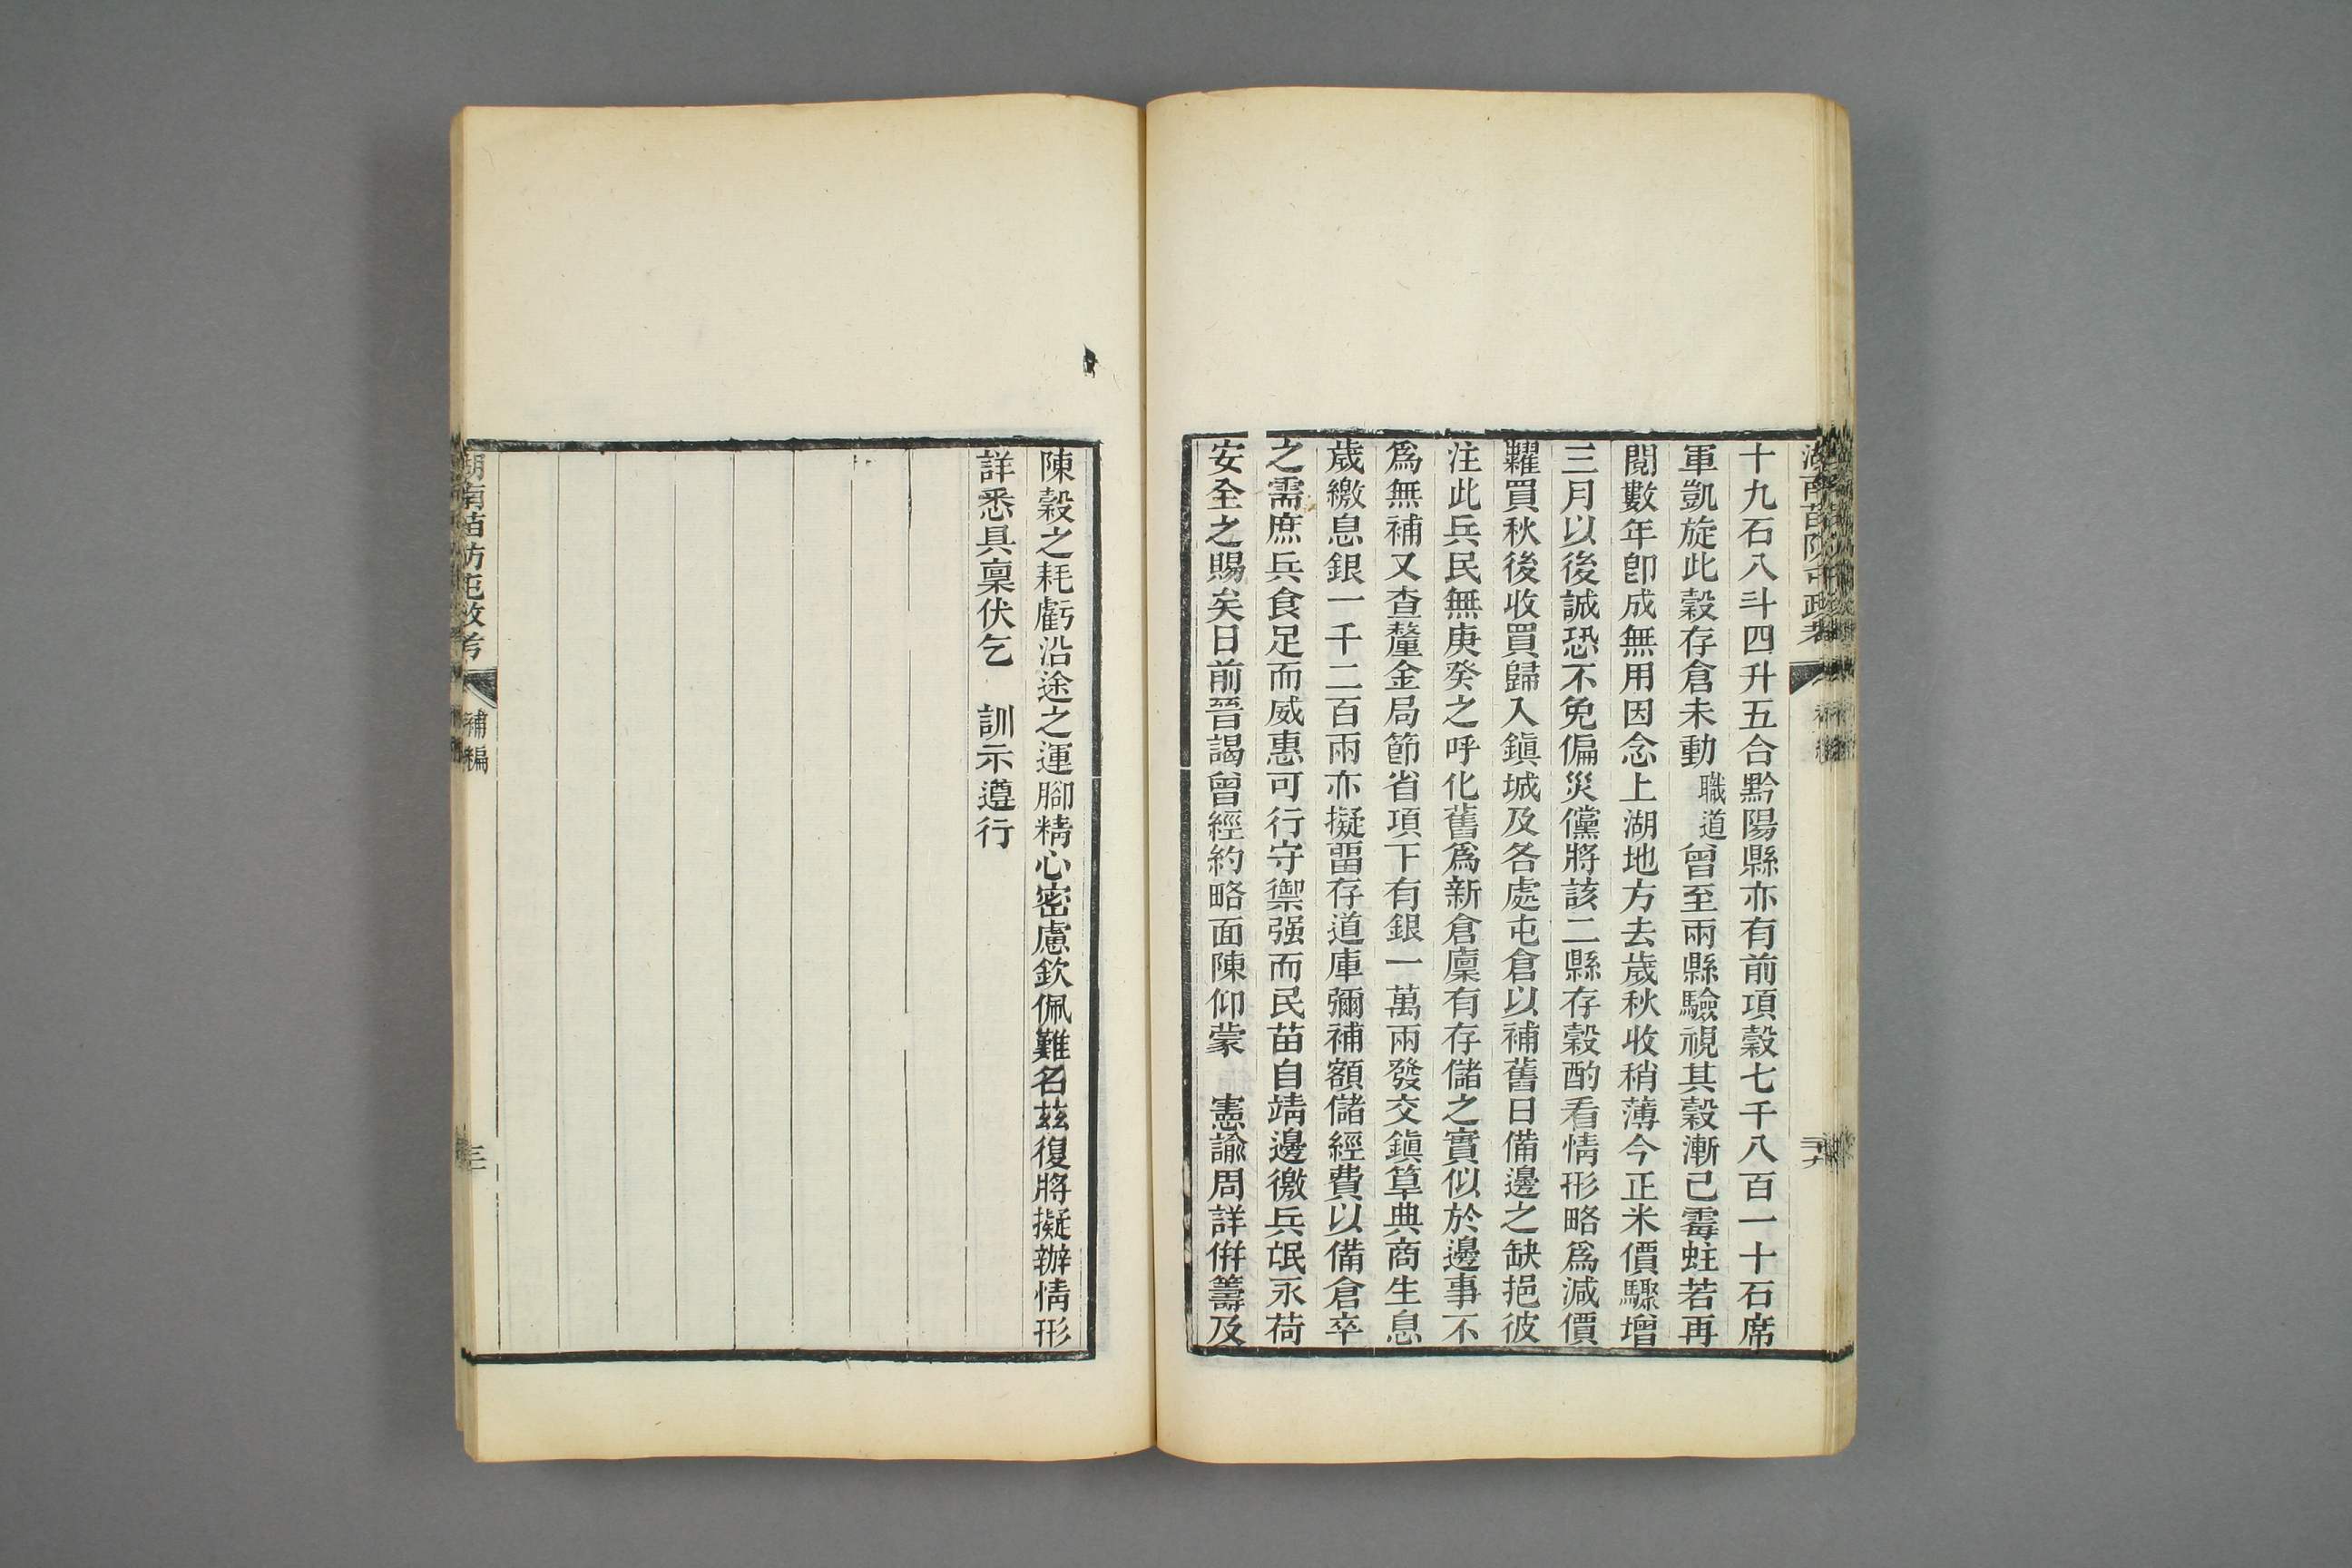 湖南苗防屯政考
補編
三十九
十九石八斗四升五合黔陽縣亦有前項穀七千八百一十石席
軍凱旋此穀存倉未動職道曾至兩縣驗視其穀漸已霉蛀若再
閱數年卽成無用因念上湖地方去歲秋收稍薄今正米價驟增
三月以後誠恐不免偏災儻將該二縣存穀酌看情形略爲減價
糶買秋後收買歸入鎭城及各處屯倉以補舊日備邊之缺挹彼
注此兵民無庚癸之呼化舊爲新倉廩有存儲之實似於邊事不
爲無補又查釐金局節省項下有銀一萬兩發交鎭筸典商生息
歲繳息銀一千二百兩亦擬畱存道庫彌補額儲經費以備倉卒
之需庶兵食足而威惠可行守禦强而民苗自靖邊徼兵氓永荷
安全之賜矣日前晉謁曾經約略面陳仰蒙　憲諭周詳倂籌及
陳穀之耗虧沿途之運腳精心密慮欽佩難名茲復將擬辦情形
詳悉具稟伏乞　訓示遵行
湖南苗防屯政考
補編